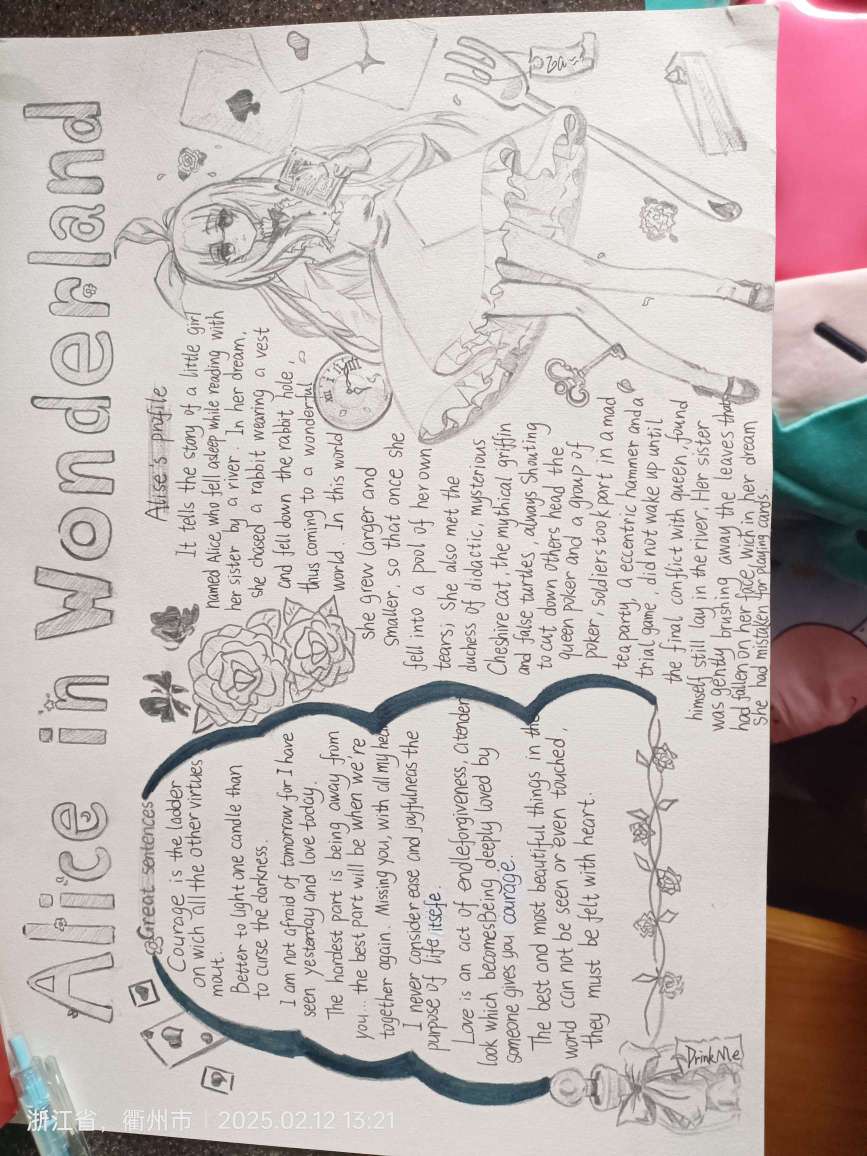 Alice in Wonderland
Great sentences
Courage is the ladder
on wich all the other virtues
mout.
Better to light one candle than
to curse the darkness.
I am not afraid of tomorrow for I have
seen yesterday and love today.
The hardest part is being away from
you... the best part will be when we're
together again. Missing you, with all my hea
I never consider ease and joyfulneas the
purpose of life itsefe.
Love is an act of endleforgiveness, a tender
look which becomes Being deeply loved by
someone gives you courage.
The best and most beautiful things in the
world can not be seen or even touched,
they must be felt with heart.
Drink Me
Alise's profile
It tells the story of a little girl
named Alice, who fell asleep while reading with
her sister by a river. In her dream,
she chased a rabbit wearing a vest
and fell down the rabbit hole,
thus coming to a wonderful
world. In this world
she grew larger and
smaller, so that once she
fell into a pool of her own
tears; She also met the
duchess of didactic, mysterious
Cheshire cat, the mythical griffin
and false turtles, always shouting
to cut down others head the
queen poker and a group of
poker, soldiers took part in a mad
tea party, a eccentric hammer and a
trial game, did not wake up until
the final conflict with queen, found
himself still lay in the river, Her sister
was gently brushing away the leaves that
had fallen on her face, wich in her dream
she had mistaken for playing cards.
浙江省，衢州市 | 2025.02.12 13:21